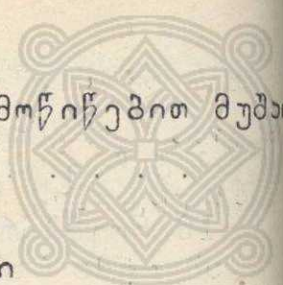 მოწიწებით მუშა
. . . . .
ი